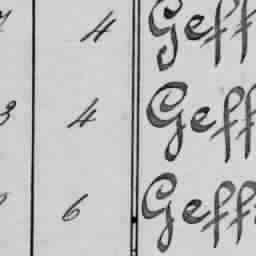 4 Geff
3 4 Geff
6 Geff